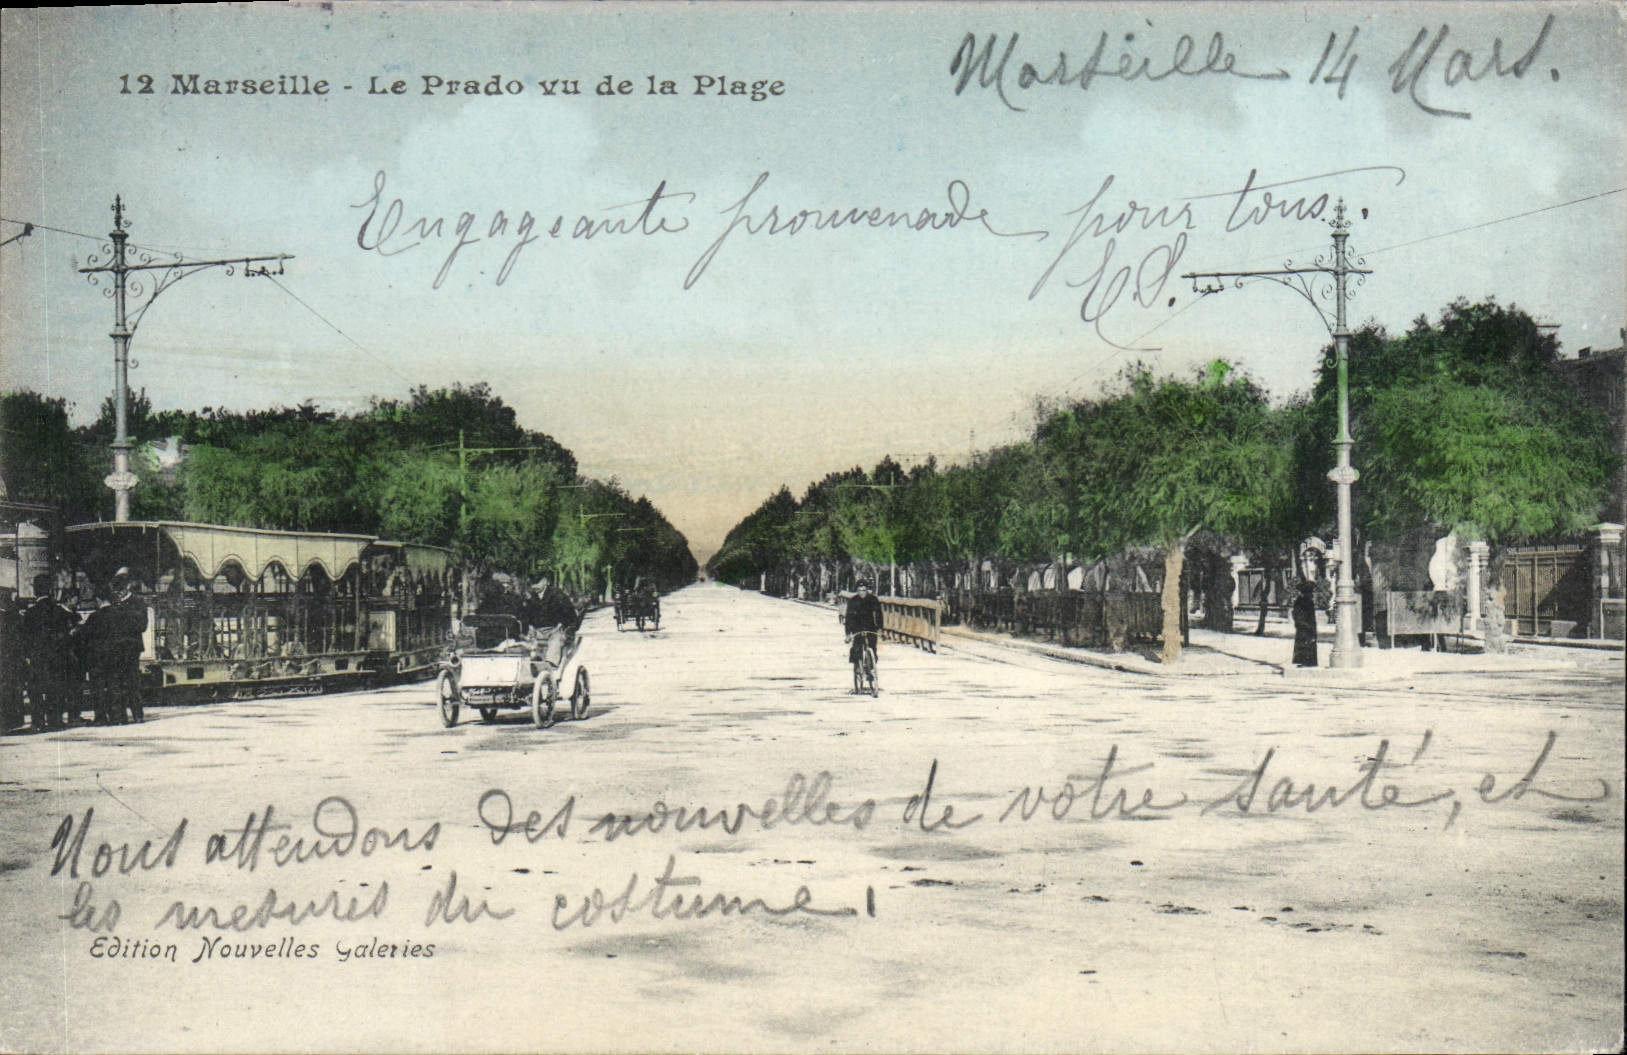 Marseille 14 Mars.
12 Marseille - Le Prado vu de la Plage
Engageante promenade pour tous.
E.S.
Nous attendons des nouvelles de votre santé, et
les mesures du costume.
Edition Nouvelles Galeries